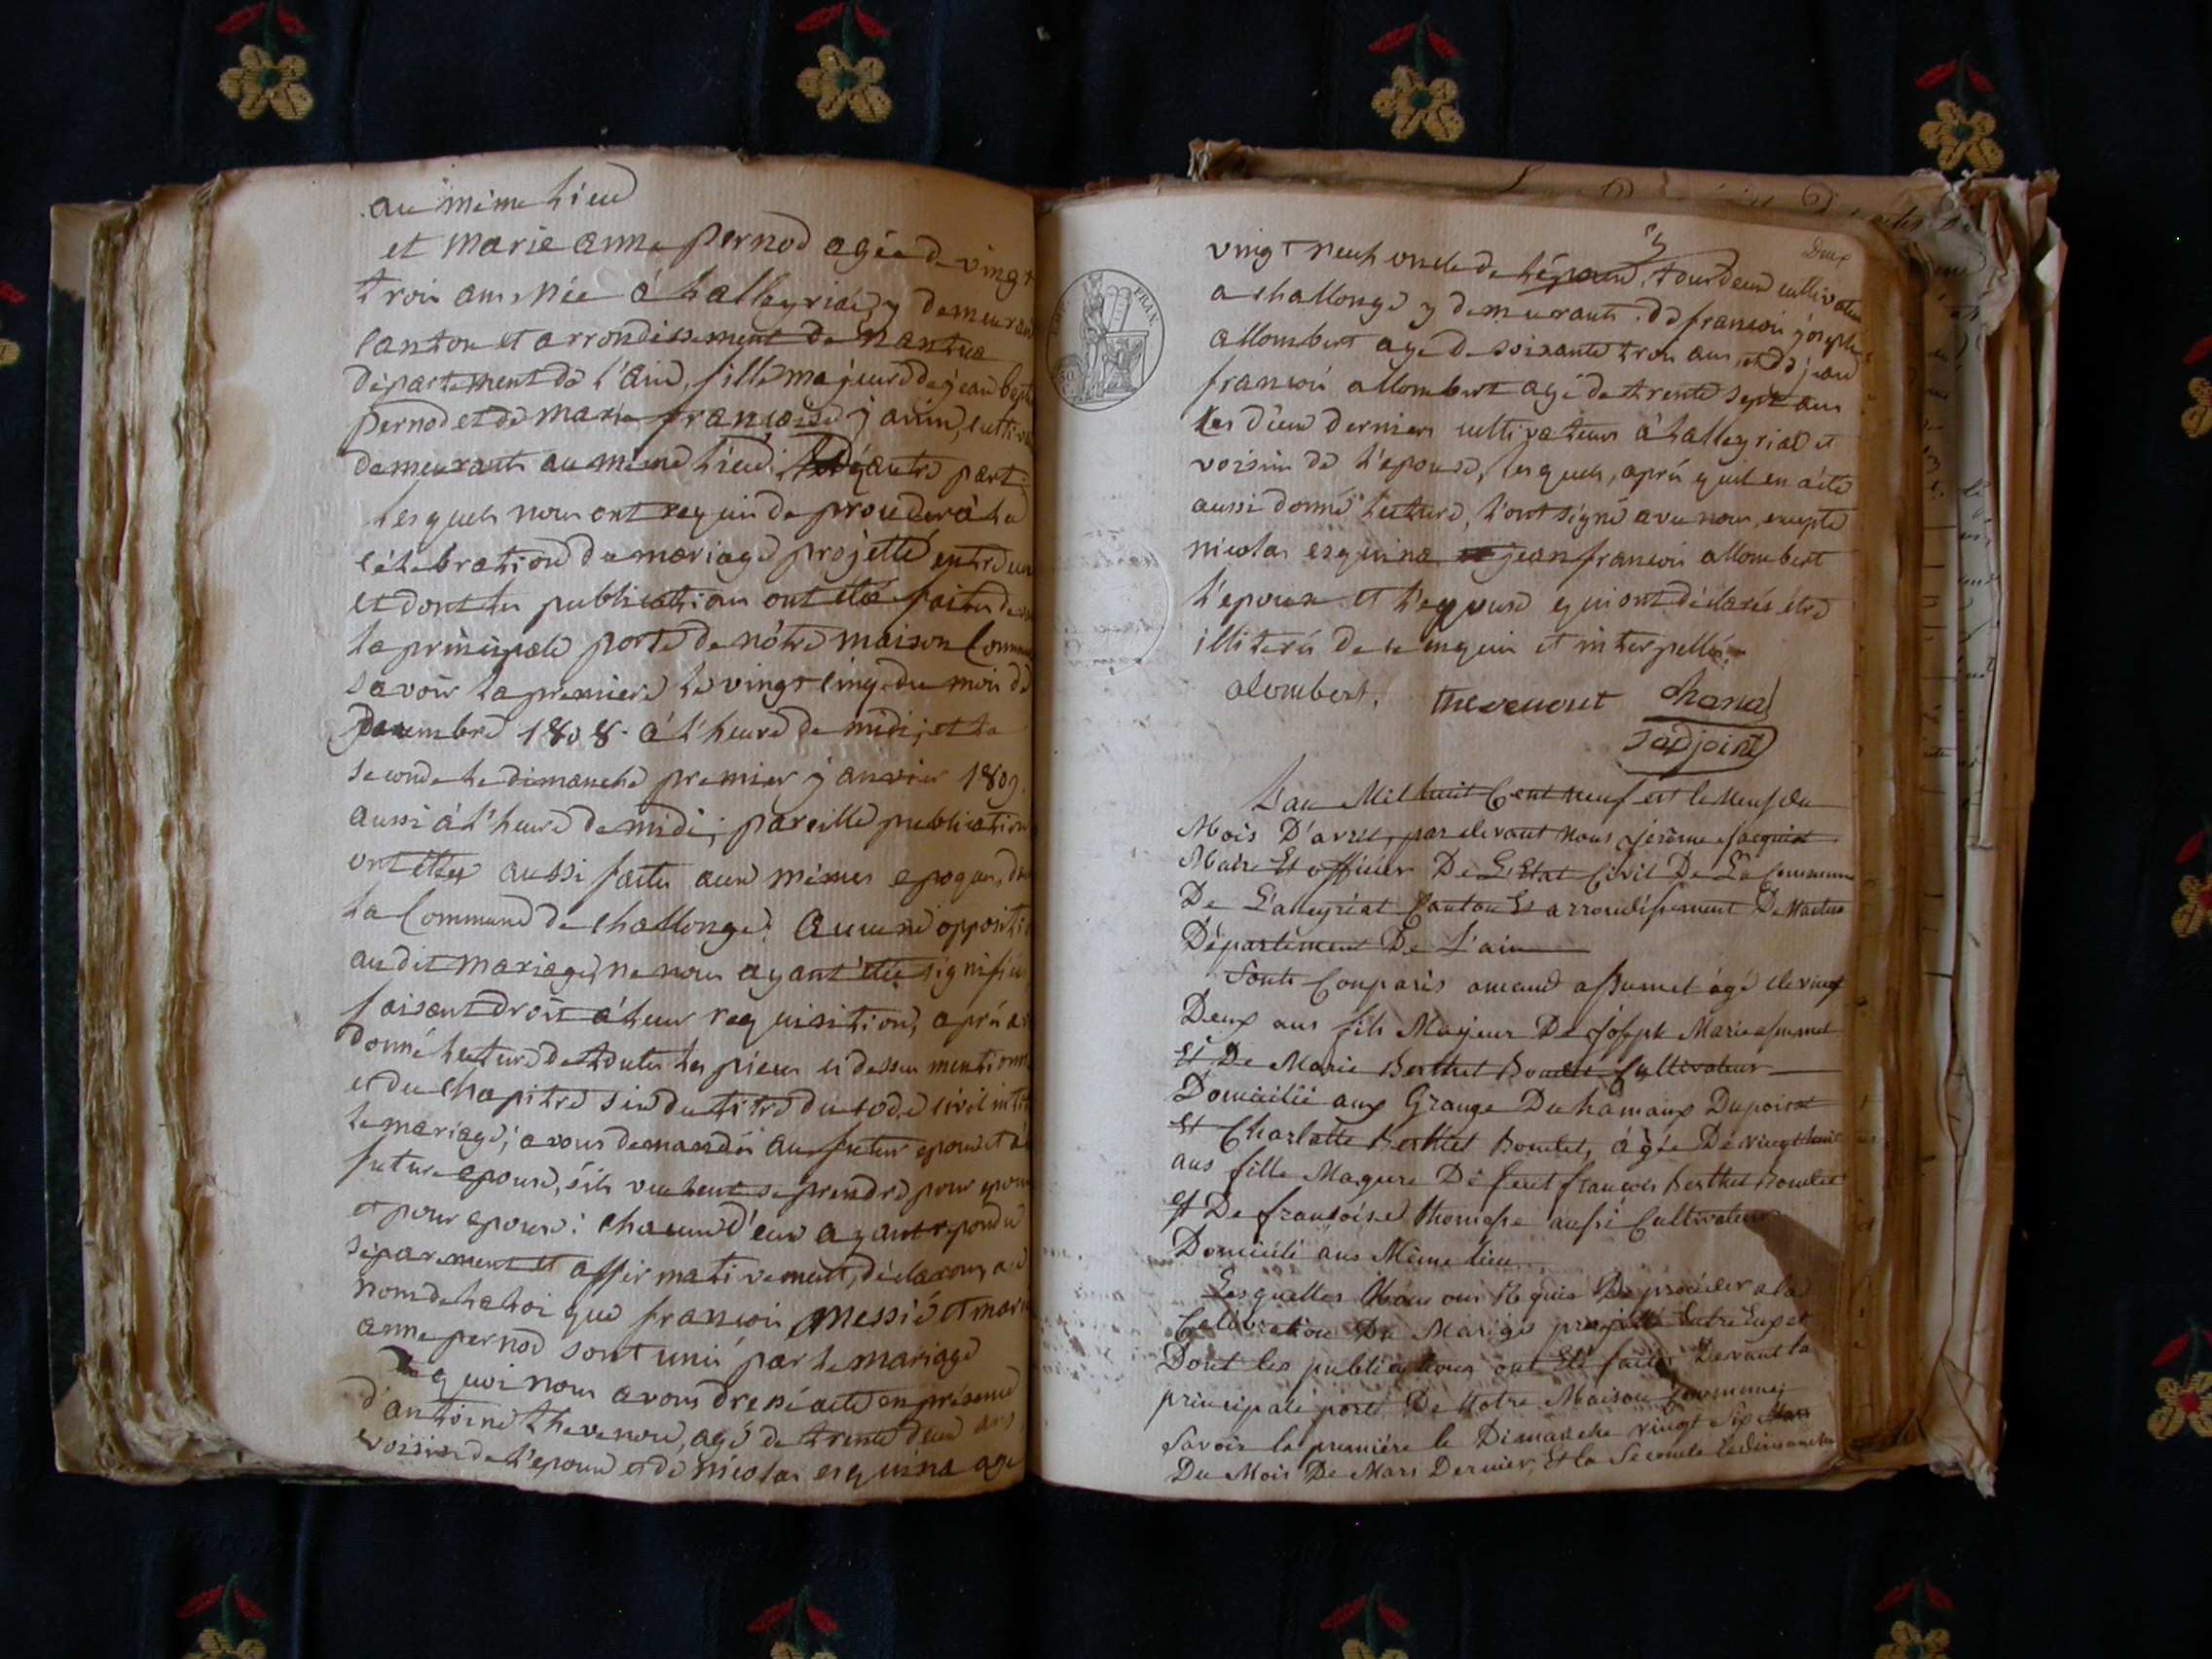 au même lieu
et marie anne pernod agée de vingt
trois ans née à lalleyriat, y demeurant
canton et arrondissement de nantua
département de l'ain, fille majeure de jean bapt
pernod et de marie françoise j cultiv
demeurants au même lieu, d'autre part
lesquels nous ont requis de proceder à la
célébration du mariage projetté entre eux
et dont les publications ont été faites devant
la principale porte de nôtre maison Commune
savoir la premiere le vingt cinq du mois de
décembre 1808. à l'heure de midi, et la
seconde le dimanche premier janvier 1809.
aussi à l'heure de midi; pareille publication
ont étés aussi faites aux mêmes epoques, dans
la Commune de challonge. aucune oppositi
au dit mariage, ne nous ayant été signifiée
faisant droit à leur requisition, après a
donné lecture de toutes les pieces ci dessus mentionn
et du chapitre six du titre du code civil intit
le mariage; avons demandés au futur epoux et à
future epouse, s'ils veulent se prendre pour epoux
et pour epouse: chacun d'eux ayant repondu
séparement et affirmativement, déclarons, au
nom de la loi que françois messié et marie
anne pernod sont unis par le mariage
De quoi nous avons dressé acte en présence
d'antoine thevenond, agé de trente deux ans
voisin de l'epoux et de nicolas esquina agé
Deux
vingt neuf oncle de l'épouse, tous deux cultivateurs
a challonge y demeurants. de françois joseph
allombert agé de soixante trois ans, et de jean
françois allombert agé de trente sept ans
les deux derniers cultivateurs à lalleyriat et
voisins de l'epouse, lesquels, après qu'il en a été
aussi donné lecture, l'ont signé avec nous, excepté
nicolas esquina jean françois allombert
l'epoux et l'epouse qui ont déclarés être
illiterés de ce enquis et interpellés.
alombert. thevenont chana
adjoint
EMP. FRAN.
L'an Mil huit Cent neuf est le Neuf du
Mois D'avril, par devant nous Jérôme Jacquiot
Maire Et officier De L'Etat Civil De La Commune
De L'aleyriat Canton Et arrondissement De Nantua
Département De L'ain
Sonts Conparis amand assumel âgé de vingt
Deux ans fils Majeur De Joseph Marie assumel
Et De Marie Berthet Bouclet Cultivateur
Domicilié aux Grange Du hamaux Dupoizat
Et Charlotte Berthet Bouclet, âgée De vingt huit
ans fille Magure De feut françois Berthet Bouclet
et De françoise thomasse aussi Cultivateur
Domicilié aus Même lieu
Lesquelles Nous ons Requis De procéder a la
Celébration Du Mariage projetté Entre Eux et
Dont les publications ont Eté faites Devant la
principale porte De Notre Maison Commune,
Savoir la première le Dimanche vingt Six
Du Mois De Mars Dernier, Et la Seconde le dimanche